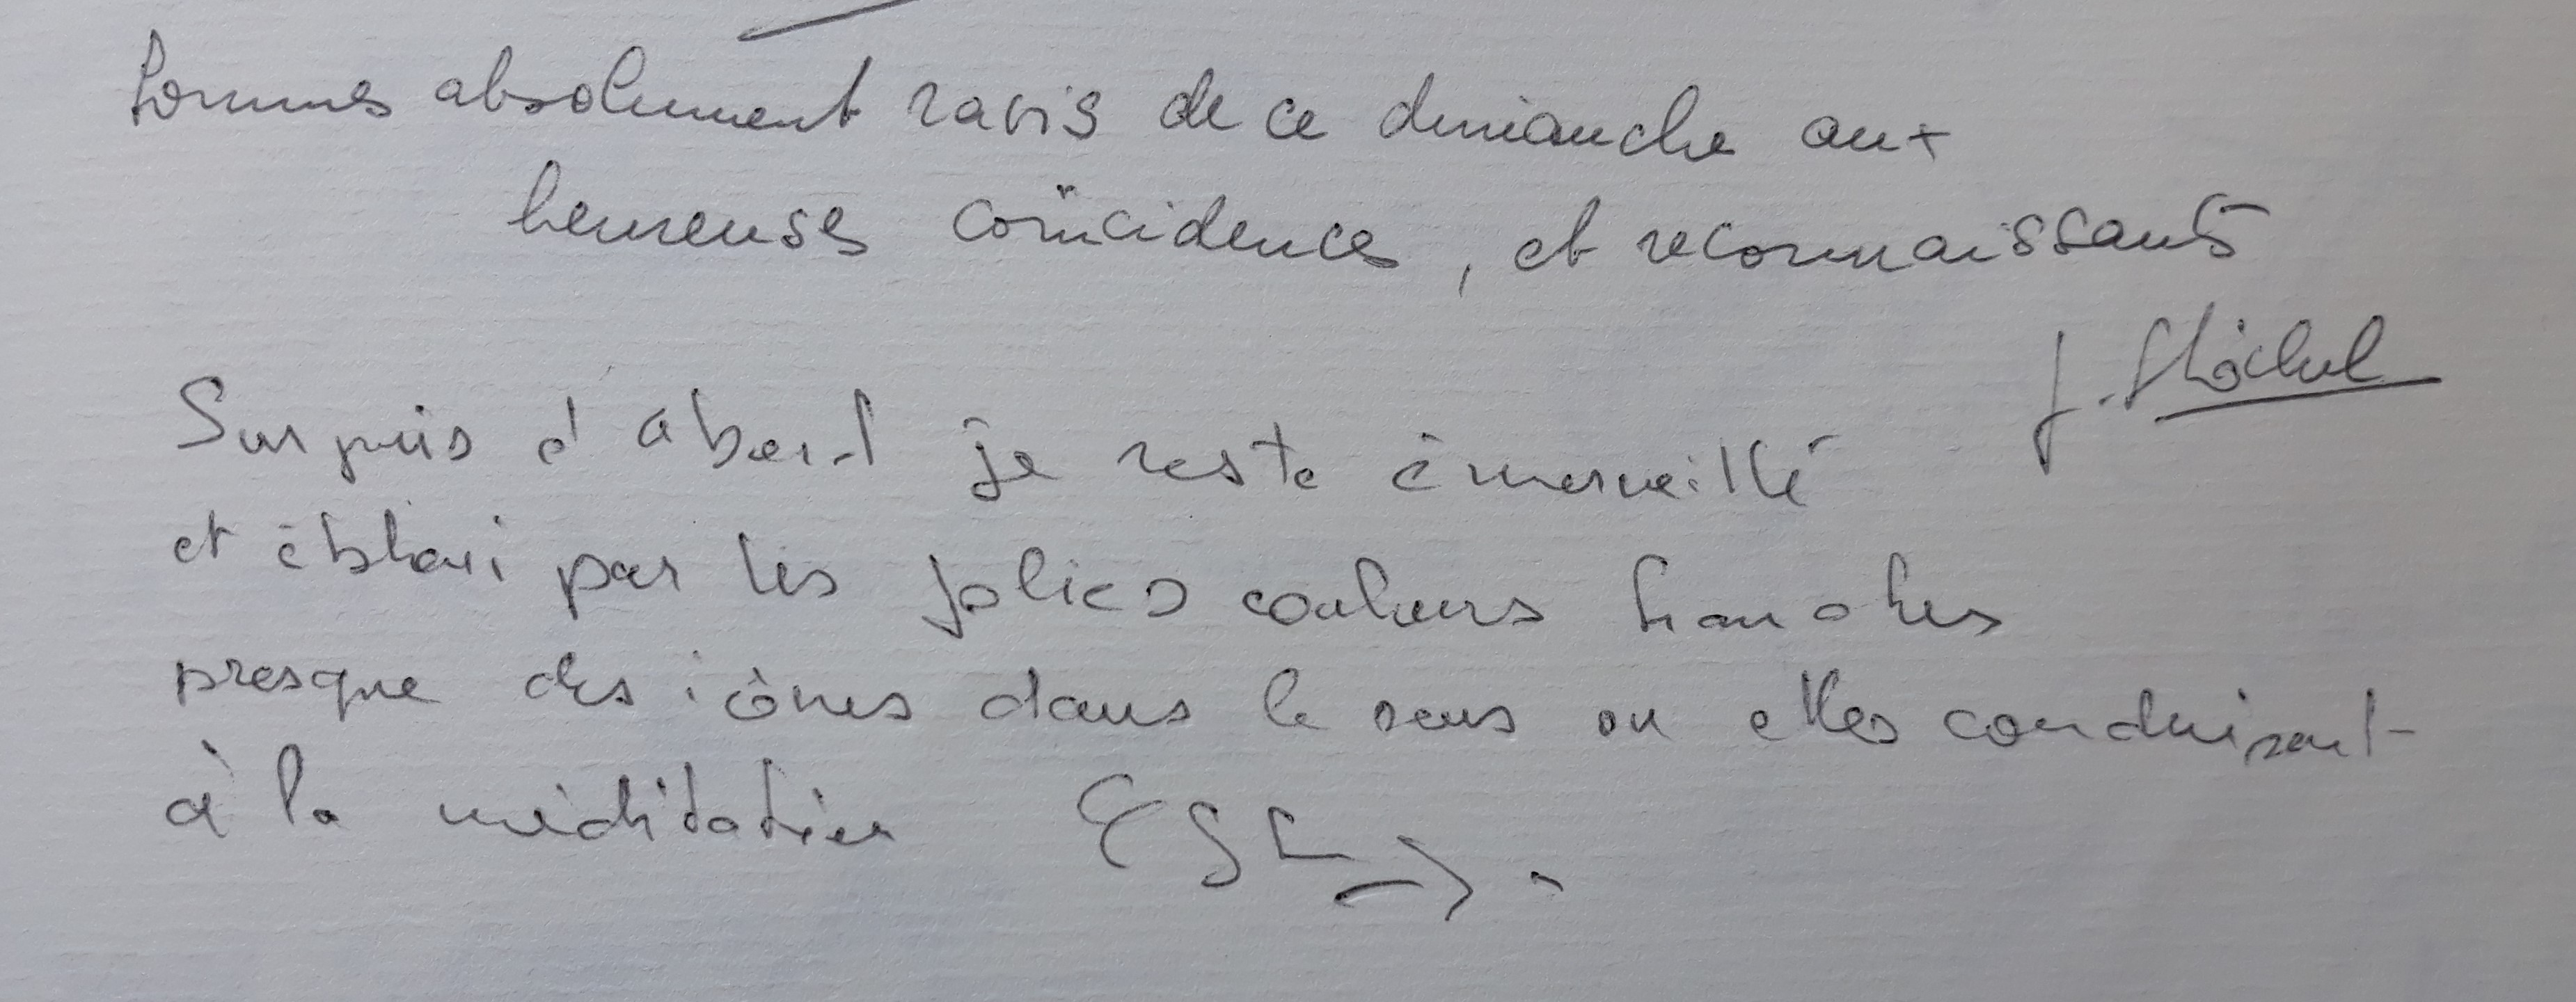 sommes absolument ravis de ce dimanche aux
heureuses coïncidences, et reconnaissants
Surpris d'abord je reste émerveillé
et ébloui par les jolies couleurs franches
presque des icônes dans le sens ou elles conduisent
à la méditation